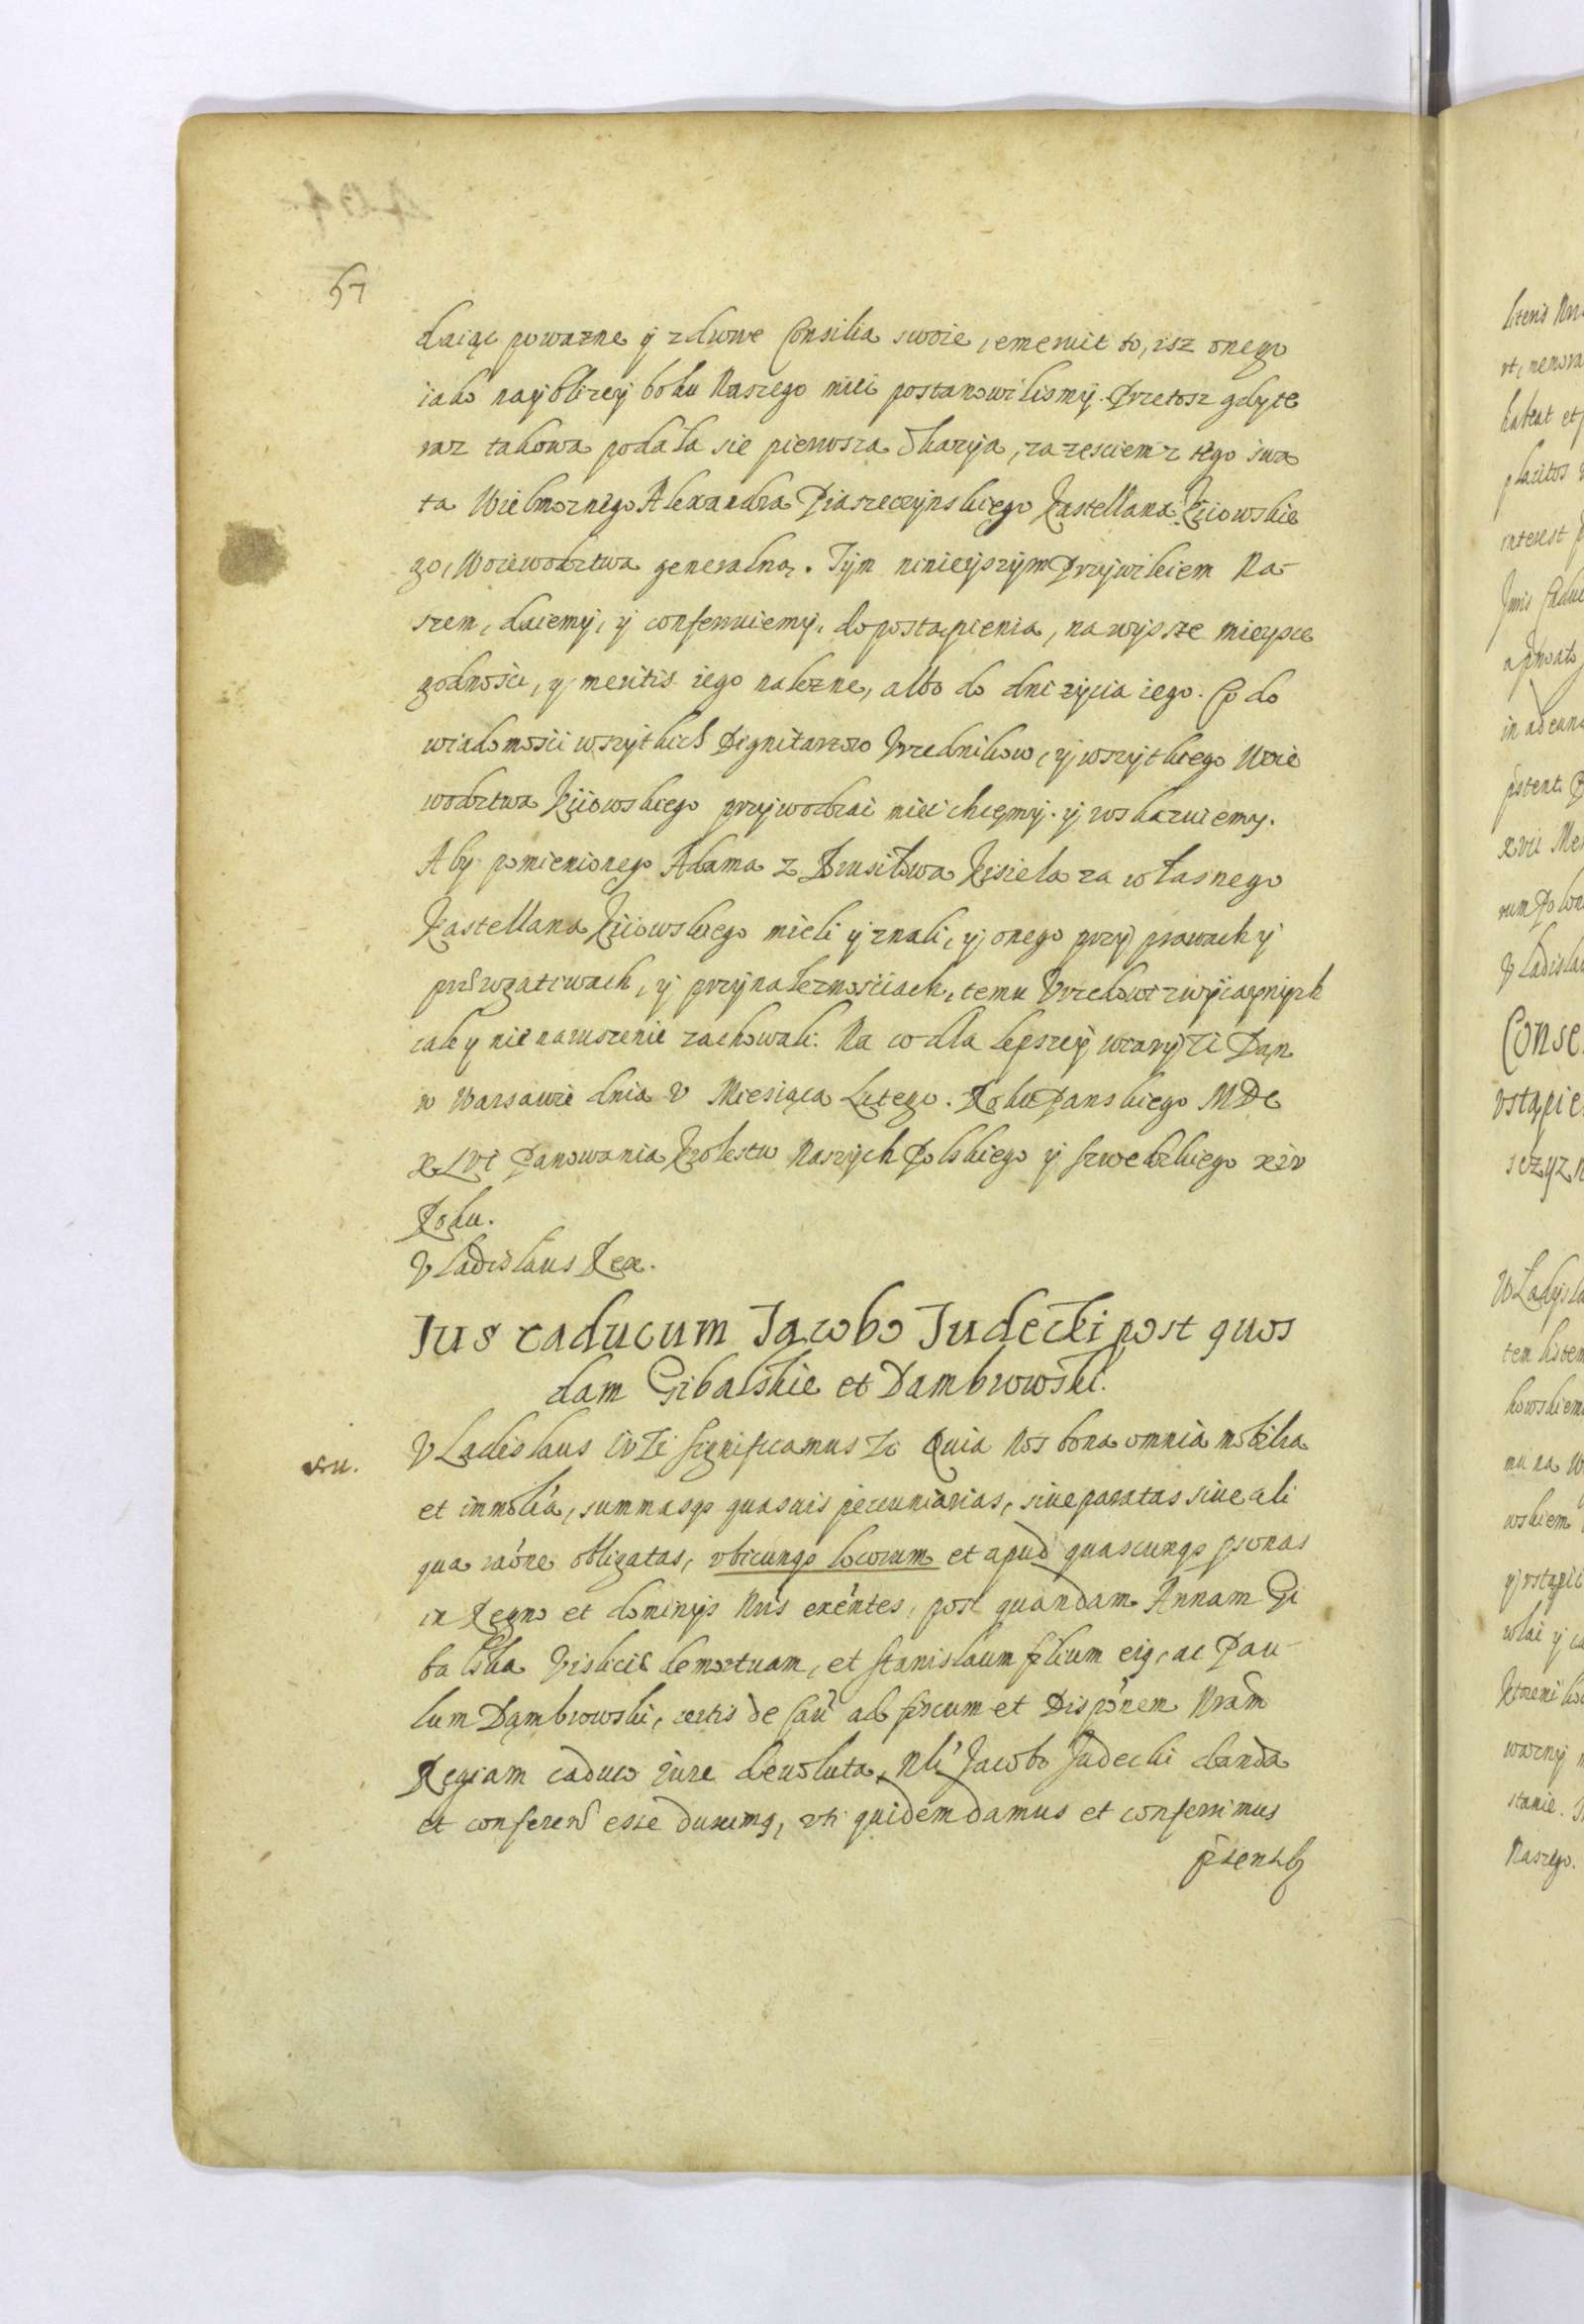 57
daiąc powazne ÿ zdrowe Consilia swoie, emeruit to, isz onego
iako nayblizeÿ boku Naszego mieć postanowilismÿ. Przetosz gdyte
raz takowa podała sie pierwsza Okazÿa, za zesciem z tego swia
ta Wielmoznego Alexandra Piaseczÿnskiego Kastellana Kiiowskie
go, Woiewodztwa generalną. Tÿm ninieÿszÿm Przÿwileiem Na-
szem, daiemÿ, ÿ conferuiemÿ, do postąpienia, na wÿzsze mieÿsce
godnosci, ÿ meritis iego nalezne, albo do dni zÿcia iego. Co do
wiadomosci wszÿtkich Dignitarzow Vrzednikow, ÿ wszÿtkiego Woie
wodztwa Kiiowskiego przÿwodzai miec chcemÿ. ÿ wskazuiemy.
Aby pomienionego Adama z Brusiłowa Kisiela za własnego
Kastellana Kiiowskiego mieli ÿ znali, ÿ onego przÿ prawach ÿ
prerogatiwach, ÿ przÿnaleznosciach, temu Vrzedowi zwÿczaynÿch
cale y nie naruszenie zachowali. Na co dla lepszeÿ wiarÿ Ti Dan
w Warsawie dnia V Miesiąca Lutego. Roku Panskiego MDC
XLVI Panowania Krolestw Naszÿch Polskiego ÿ Szwedzkiego XIV
Roku.
Vladislaus Rex.
Jus caducum Jacobo Judecki post quos
dam Gibalskie et Dambrowski.
Vladislaus IV Ti Significamus Ti Quia Nos bona omnia mobilia
et immolia, summasqs quasuis pecuniarias, siue paratas siue ali
qua raone obligatas, vbicunqs locorum et apud quascunqs psonas
in Regno et dominÿs Nris exentes, post quandam Annam Gi
balska Visliciæ demortuam, et Stanislaum filium eiq, ac Pau-
lum Dąmbrowski, certis de Cau ad fiscum et Disponem Nram
Regiam caduco iure deuoluta, Nli Jacobo Judecki danda
et conferend esse duximq, vti quidem damus et conferimus
psentib